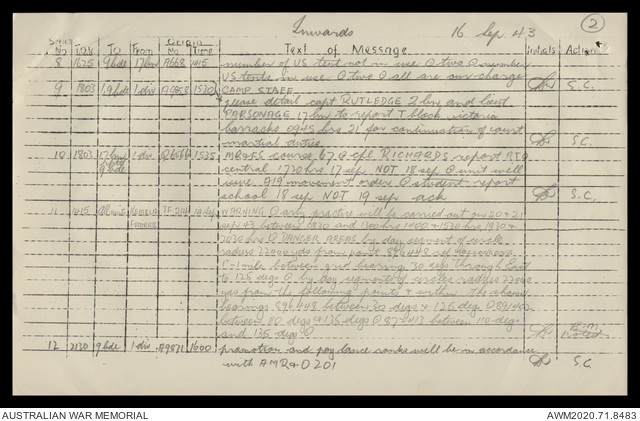 Inwards 16 Sep 43 2
Series No TOR To From Origin No Time Text of Message Initials Action
8 1625 9 bde 17 bn A668 1415 number of US tent not in use Q two Q number
US tents in use Q two Q all are our charge S.C.
9 1803 1 div 1520 CAMP STAFF
please detail capt RUTLEDGE 2 bn and lieut
PARSONAGE 17 bn to report T block victoria
barracks 0945 hrs 21 for confirmation of court
martial duties S.C.
10 1803 17 bn 1 div 1535 course 67 Q cpl RICHARDS report RTO
9 bde central 1730 hrs 17 sep NOT 18 sep Q unit will
issue A19 movement order Q student report
school 18 sep NOT 19 sep ack S.C.
11 1015 WARNING Q army practice will be carried out on 20 + 21
sep 43 between
2030 hrs Q DANGER AREAS by day segment of circle
radius 22000 yds from point 896448 ref
between grid bearing 30 degs through East
to 125 deg Q by day segments of circles radius 22000
yds from the following points + within the above
bearings 896448 between 30 degs + 125 deg Q
between 110 degs + 135 deg Q between 110 deg
and 135 deg Q Noted
12 2130 9 bde 1 div A9871 1600 promotion and pay lance ranks will be in accordance
with AMR&O 201 S.C.
AUSTRALIAN WAR MEMORIAL AWM2020.71.8483